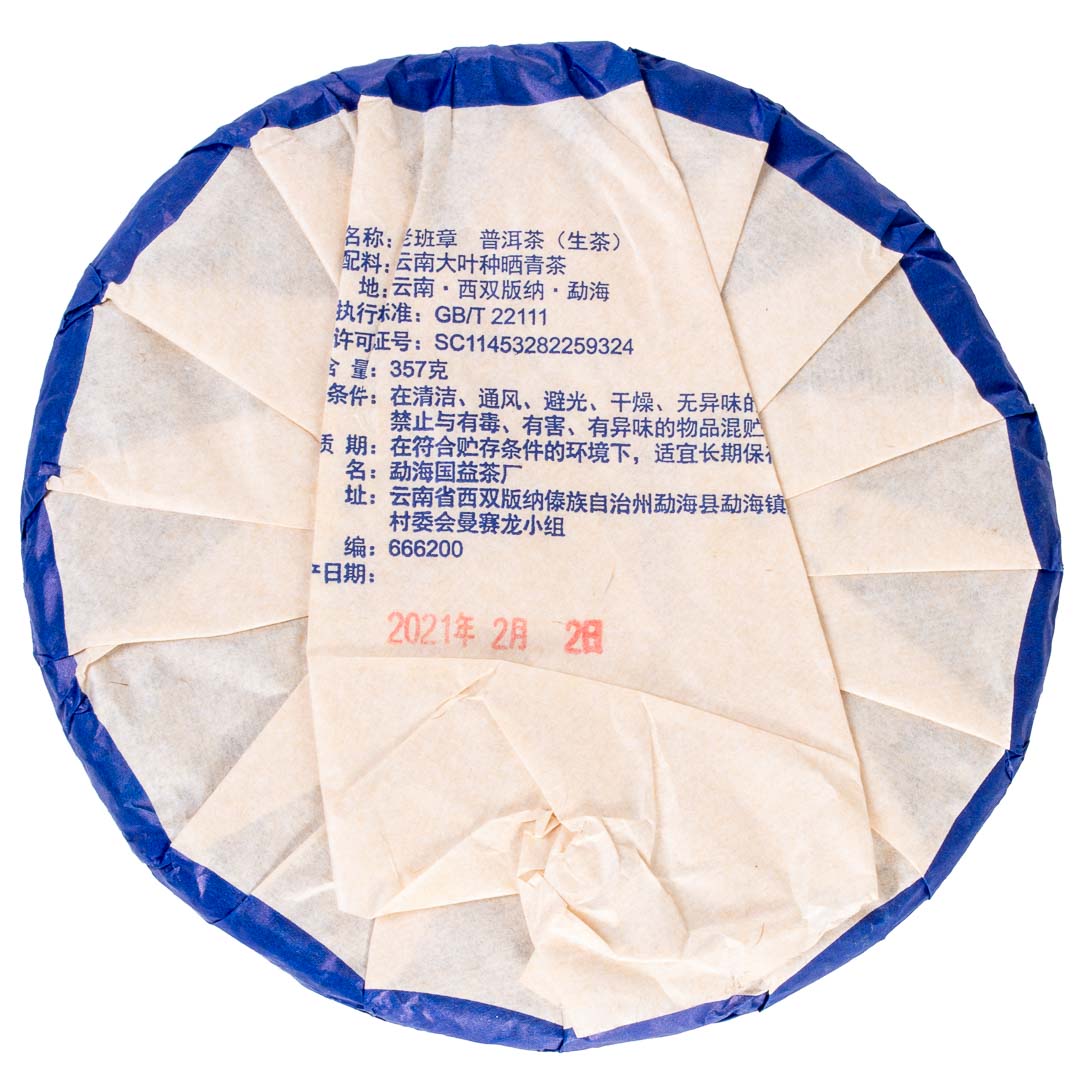 名称：老班章　普洱茶（生茶）
配料：云南大叶种晒青茶
地：云南·西双版纳·勐海
执行标准：GB/T 22111
许可证号：SC11453282259324
含 量：357克
条件：在清洁、通风、避光、干燥、无异味的
禁止与有毒、有害、有异味的物品混贮
质 期：在符合贮存条件的环境下，适宜长期保存
名：勐海国益茶厂
址：云南省西双版纳傣族自治州勐海县勐海镇
村委会曼赛龙小组
编：666200
产日期：
2021年 2月 2日